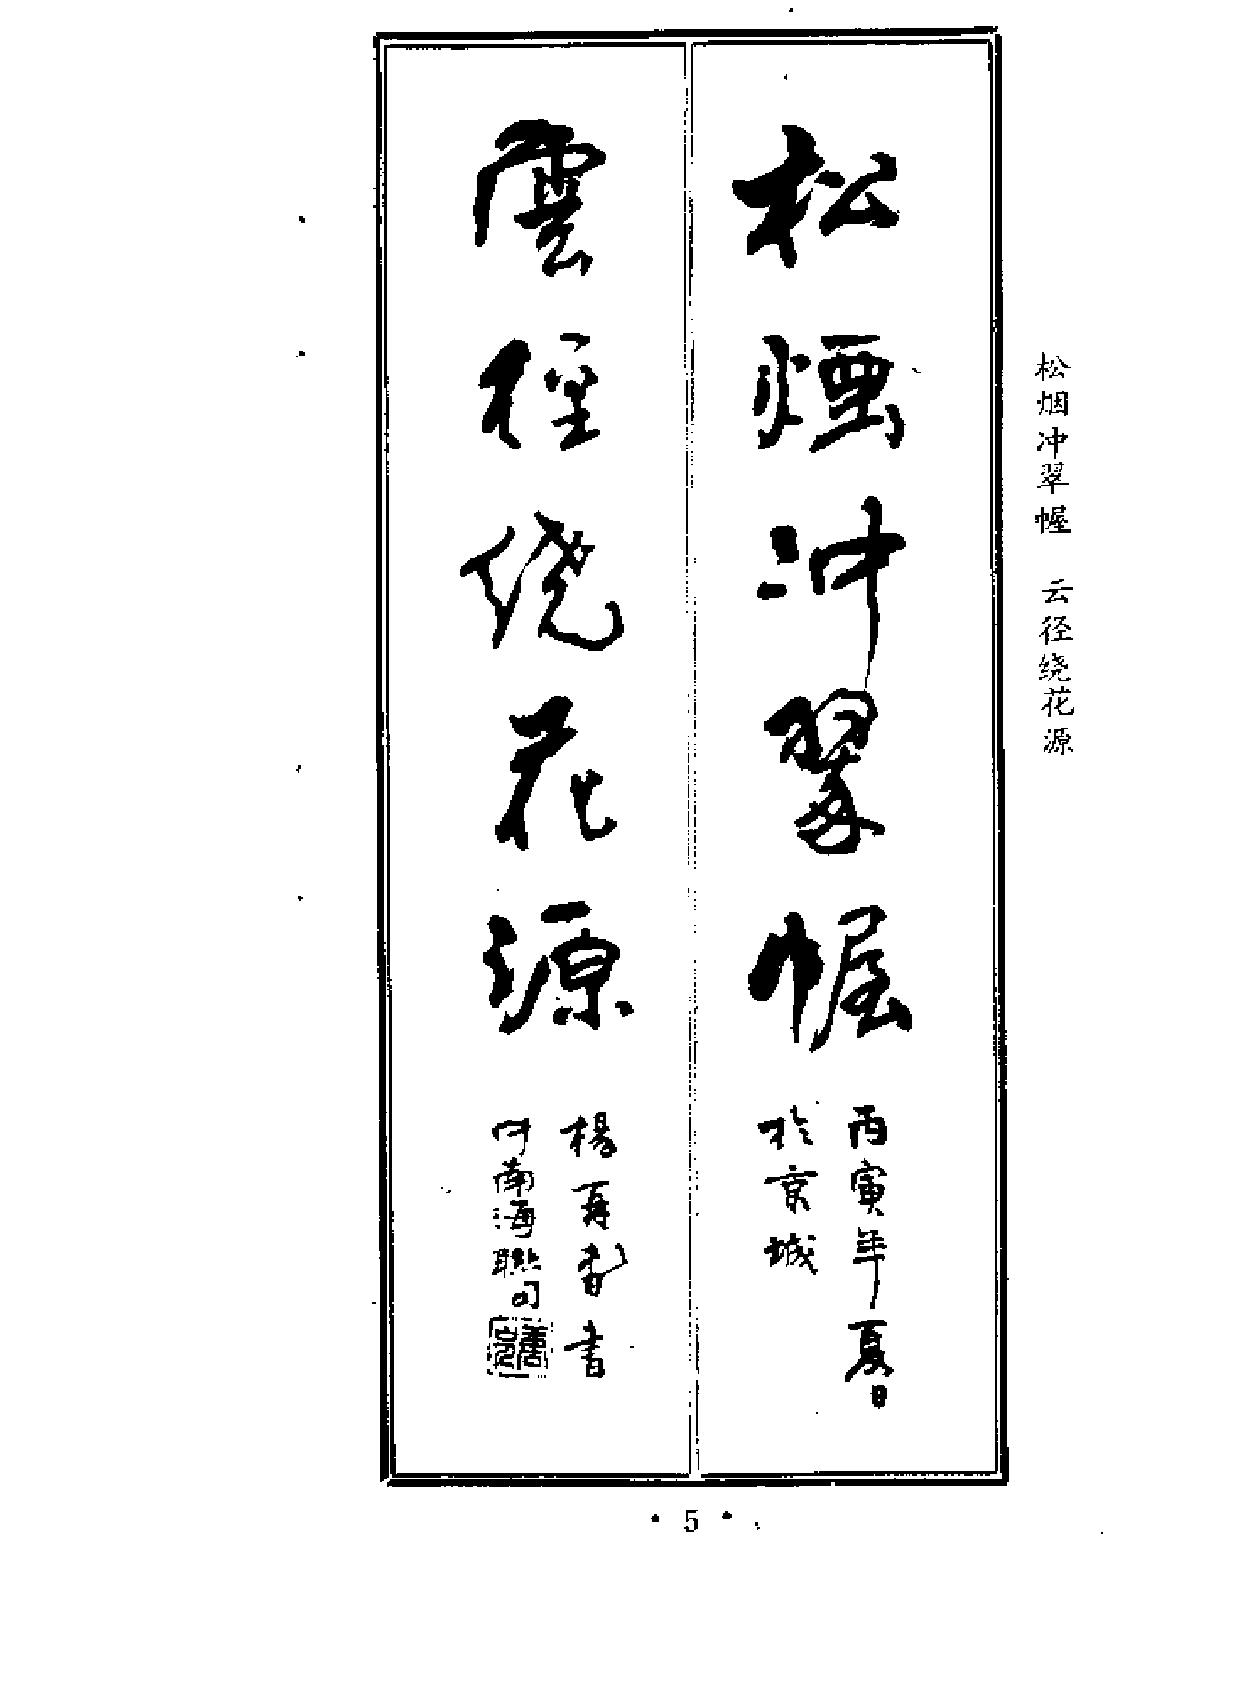 松烟冲翠幄 云径绕花源
松煙冲翠幄
丙寅年夏日
於京城
雲徑绕花源
楊再春書
于南海聯司
·5·